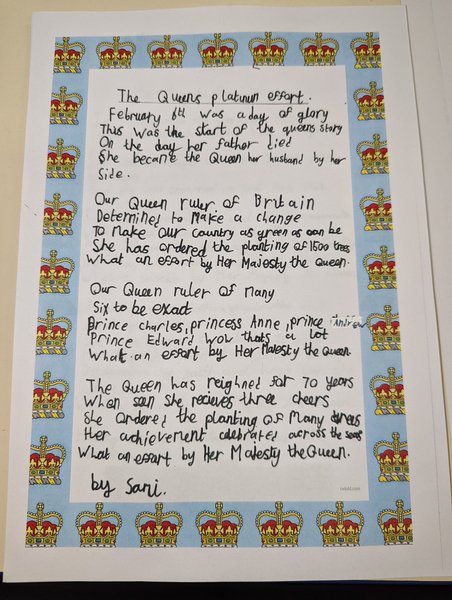 The Queens platinum effort.
February 6th was a day of glory
This was the start of the queens story
On the day her father died
She became the Queen her husband by her
side.
Our Queen ruler of Britain
Determined to make a change
To make our country as green as can be
She has ordered the planting of 1500 trees
What an effort by Her Majesty the Queen.
Our Queen ruler of many
Six to be exact
Prince charles, princess Anne, prince Andrew
Prince Edward wow thats a lot
What an effort by Her Majesty the Queen
The Queen has reighned for 70 years
When seen she recieves three cheers
She ordered the planting of many trees
Her achievement celebrated across the seas
What an effort by Her Majesty the Queen.
by Sani.
twinkl.com